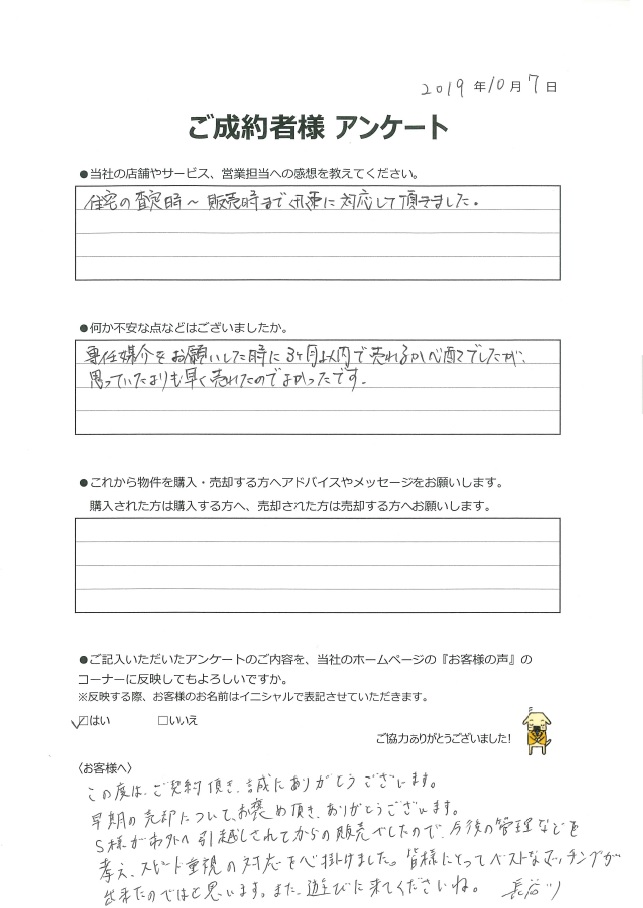 2019年10月7日
ご成約者様 アンケート
●当社の店舗やサービス、営業担当への感想を教えてください。
住宅の査定時～販売時まで迅速に対応して頂きました。
●何か不安な点などはございましたか。
専任媒介をお願いした時に3ヶ月以内で売れるか心配でしたが、
思っていたよりも早く売れたのでよかったです。
●これから物件を購入・売却する方へアドバイスやメッセージをお願いします。
購入された方は購入する方へ、売却された方は売却する方へお願いします。
●ご記入いただいたアンケートのご内容を、当社のホームページの『お客様の声』の
コーナーに反映してもよろしいですか。
※反映する際、お客様のお名前はイニシャルで表記させていただきます。
☑はい □いいえ
ご協力ありがとうございました！
〈お客様へ〉
この度は、ご契約頂き、誠にありがとうございます。
早期の売却について、お褒め頂き、ありがとうございます。
S様が市外へ引越しされてからの販売でしたので、今後の管理などを
考え、スピード重視の対応を心掛けました。皆様にとってベストなマッチングが
出来たのではと思います。また、遊びに来てくださいね。 長谷川